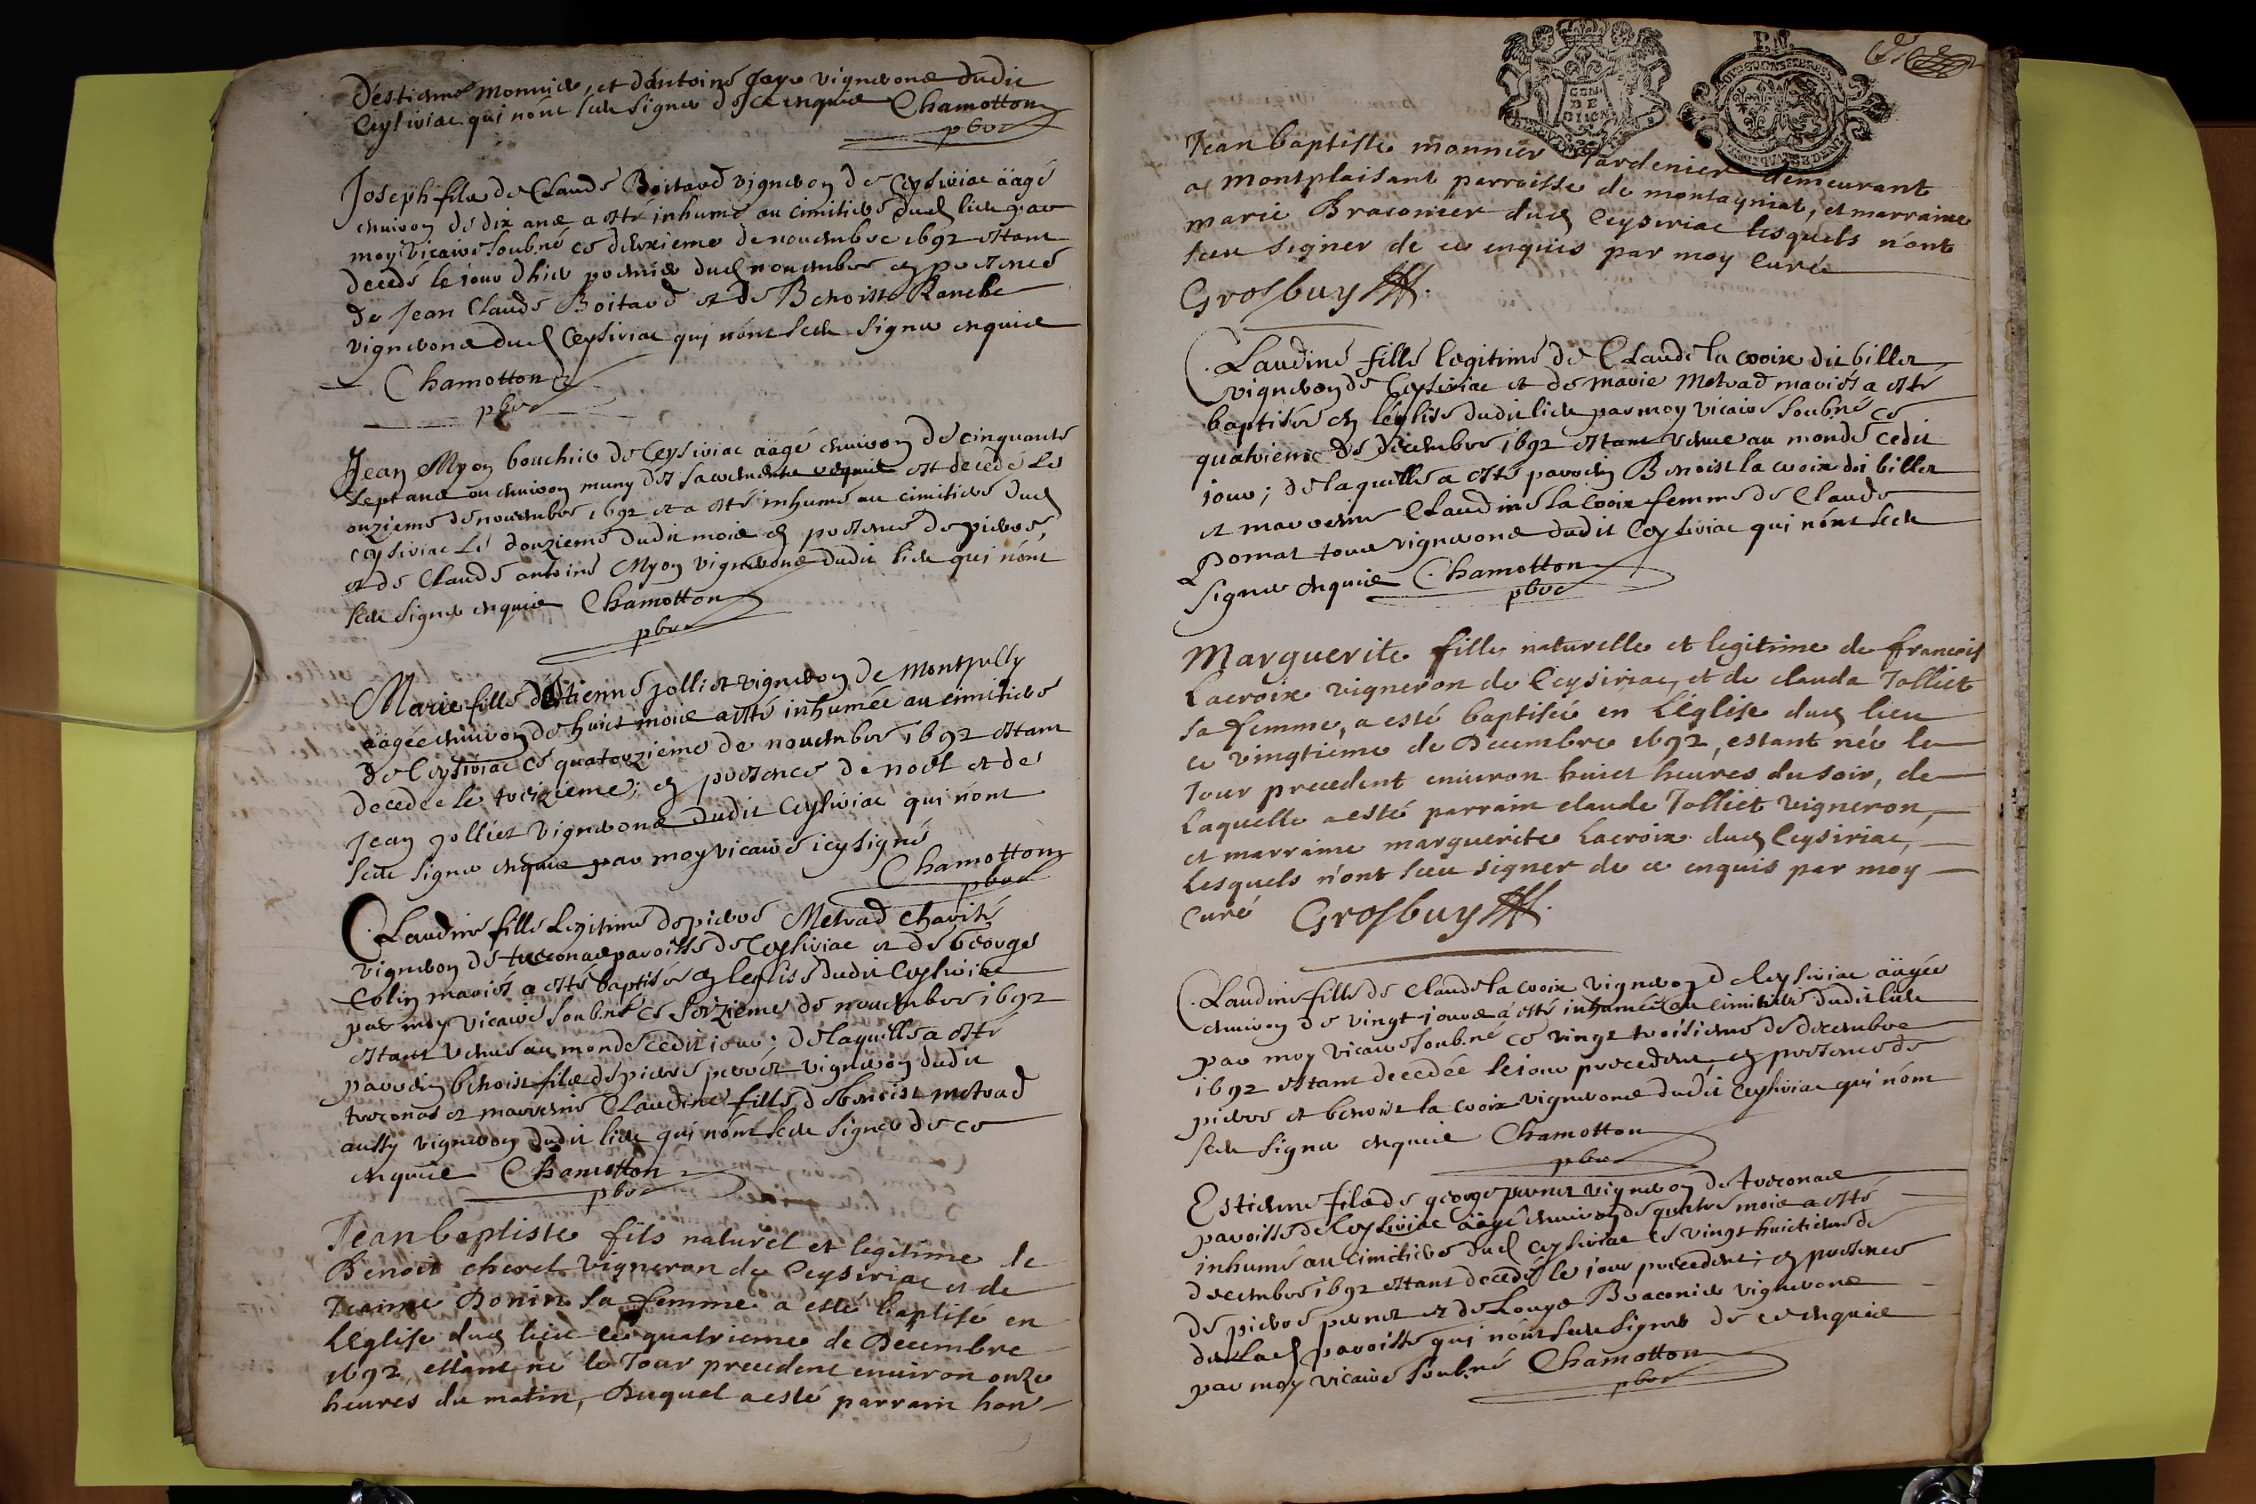 d'estienne Monnier, et d'Antoine Jayr vignerons dudit
Ceysiriac qui n'ont sceu signer de ce enquis Chamotton
pbre
Joseph fils de Claude Boitard vigneron de Ceysiriac aagé
environ de dix ans a esté inhumé au cimitiere dud lieu par
moy vicaire soubné ce deuxieme de novembre 1692 estant
decedé le jour d'hier premier dud novembre en presence
de Jean Claude Boitard et de Benoist Ranche
vignerons dud Ceysiriac qui n'ont sceu signer enquis
Chamotton
pbre
Jean Myon bouchier de Ceysiriac aagé environ de cinquante
sept ans ou environ muny des sacremens est decedé le
onzieme de novembre 1692 et a esté inhumé au cimitiere dud
Ceysiriac le douzieme dudit mois en presence de pierre,
et de Claude antoine Myon vignerons dudit lieu qui n'ont
sceu signer enquis Chamotton
pbre
Marie fille d'Estienne Jolliet vigneron de Montjully
aagée environ de huict mois a esté inhumée au cimitiere
de Ceysiriac ce quatorzieme de novembre 1692 estant
decedée le treizieme; en presence de noel et de
Jean Jolliet vignerons dudit Ceysiriac qui n'ont
sceu signer enquis par moy vicaire icy signé
Chamotton
pbre
Claudine fille legitime de pierre Metrad Charité
vigneron de treconas paroisse de Ceysiriac et de George
Colin mariés a esté baptisée en leglise dudit Ceysiriac
par moy vicaire soubné ce seizieme de novembre 1692
estant venue au monde cedit jour; de laquelle a esté
parrein benoist fils de pierre pernet vigneron dudit
treconas et marreine Claudine fille de benoist metrad
aussy vigneron dudit lieu qui n'ont sceu signer de ce
enquis Chamotton
pbre
Jean baptiste fils naturel et legitime de
Benoit cheret vigneron de Ceysiriac et de
Jeanne Donin sa femme a esté baptisé en
L'Eglise dud lieu ce quatrieme de Decembre
1692, estant né le Jour precedent environ onze
heures du matin, Duquel a esté parrain hon
Jean baptiste monnier Jardenier demeurant
a Montplaisant parroisse de montagniat, et marraine
marie Braconier dud Ceysiriac lesquels n'ont
sceu signer de ce enquis par moy Curé
Grosbuy
Claudine fille legitime de Claude la croix dit billet
vigneron de Ceysiriac et de marie Metrad mariés a esté
baptisée en l'eglise dudit lieu par moy vicaire soubné ce
quatrieme de decembre 1692 estant venue au monde cedit
jour; de laquelle a esté parrein Benoist la croix dit billet
et marreine Claudine la croix femme de Claude
Pomat tous vignerons dudit Ceysiriac qui n'ont sceu
signer enquis Chamotton
pbre
Marguerite fille naturelle et legitime de francois
Lacroix vigneron de Ceysiriac, et de clauda Jolliet
sa femme, a esté baptisée en L'Eglise dud lieu
ce vingtieme de Decembre 1692, estant née le
Jour precedent environ huict heures du soir, de
Laquelle a esté parrain claude Jolliet vigneron,
et marraine marguerite Lacroix dud Ceysiriac,
Lesquels n'ont sceu signer de ce enquis par moy
Curé Grosbuy
Claudine fille de Claude la croix vigneron de Ceysiriac aagée
environ de vingt jours a esté inhumée au cimitiere dudit lieu
par moy vicaire soubné ce vingt troisieme de decembre
1692 estant decedée le jour precedent, en presence de
pierre et benoist la croix vignerons dudit Ceysiriac qui n'ont
sceu signer enquis Chamotton
pbre
Estienne fils de george pernet vigneron de treconas
paroisse de Ceysiriac aagé environ de quatre mois a esté
inhumé au cimitiere dud Ceysiriac ce vingt huictieme de
decembre 1692 estant decedé le jour precedent; en presence
de pierre pernet et de Louys Braconier vignerons
de lad paroisse qui n'ont sceu signer de ce enquis
par moy vicaire soubné Chamotton
pbre